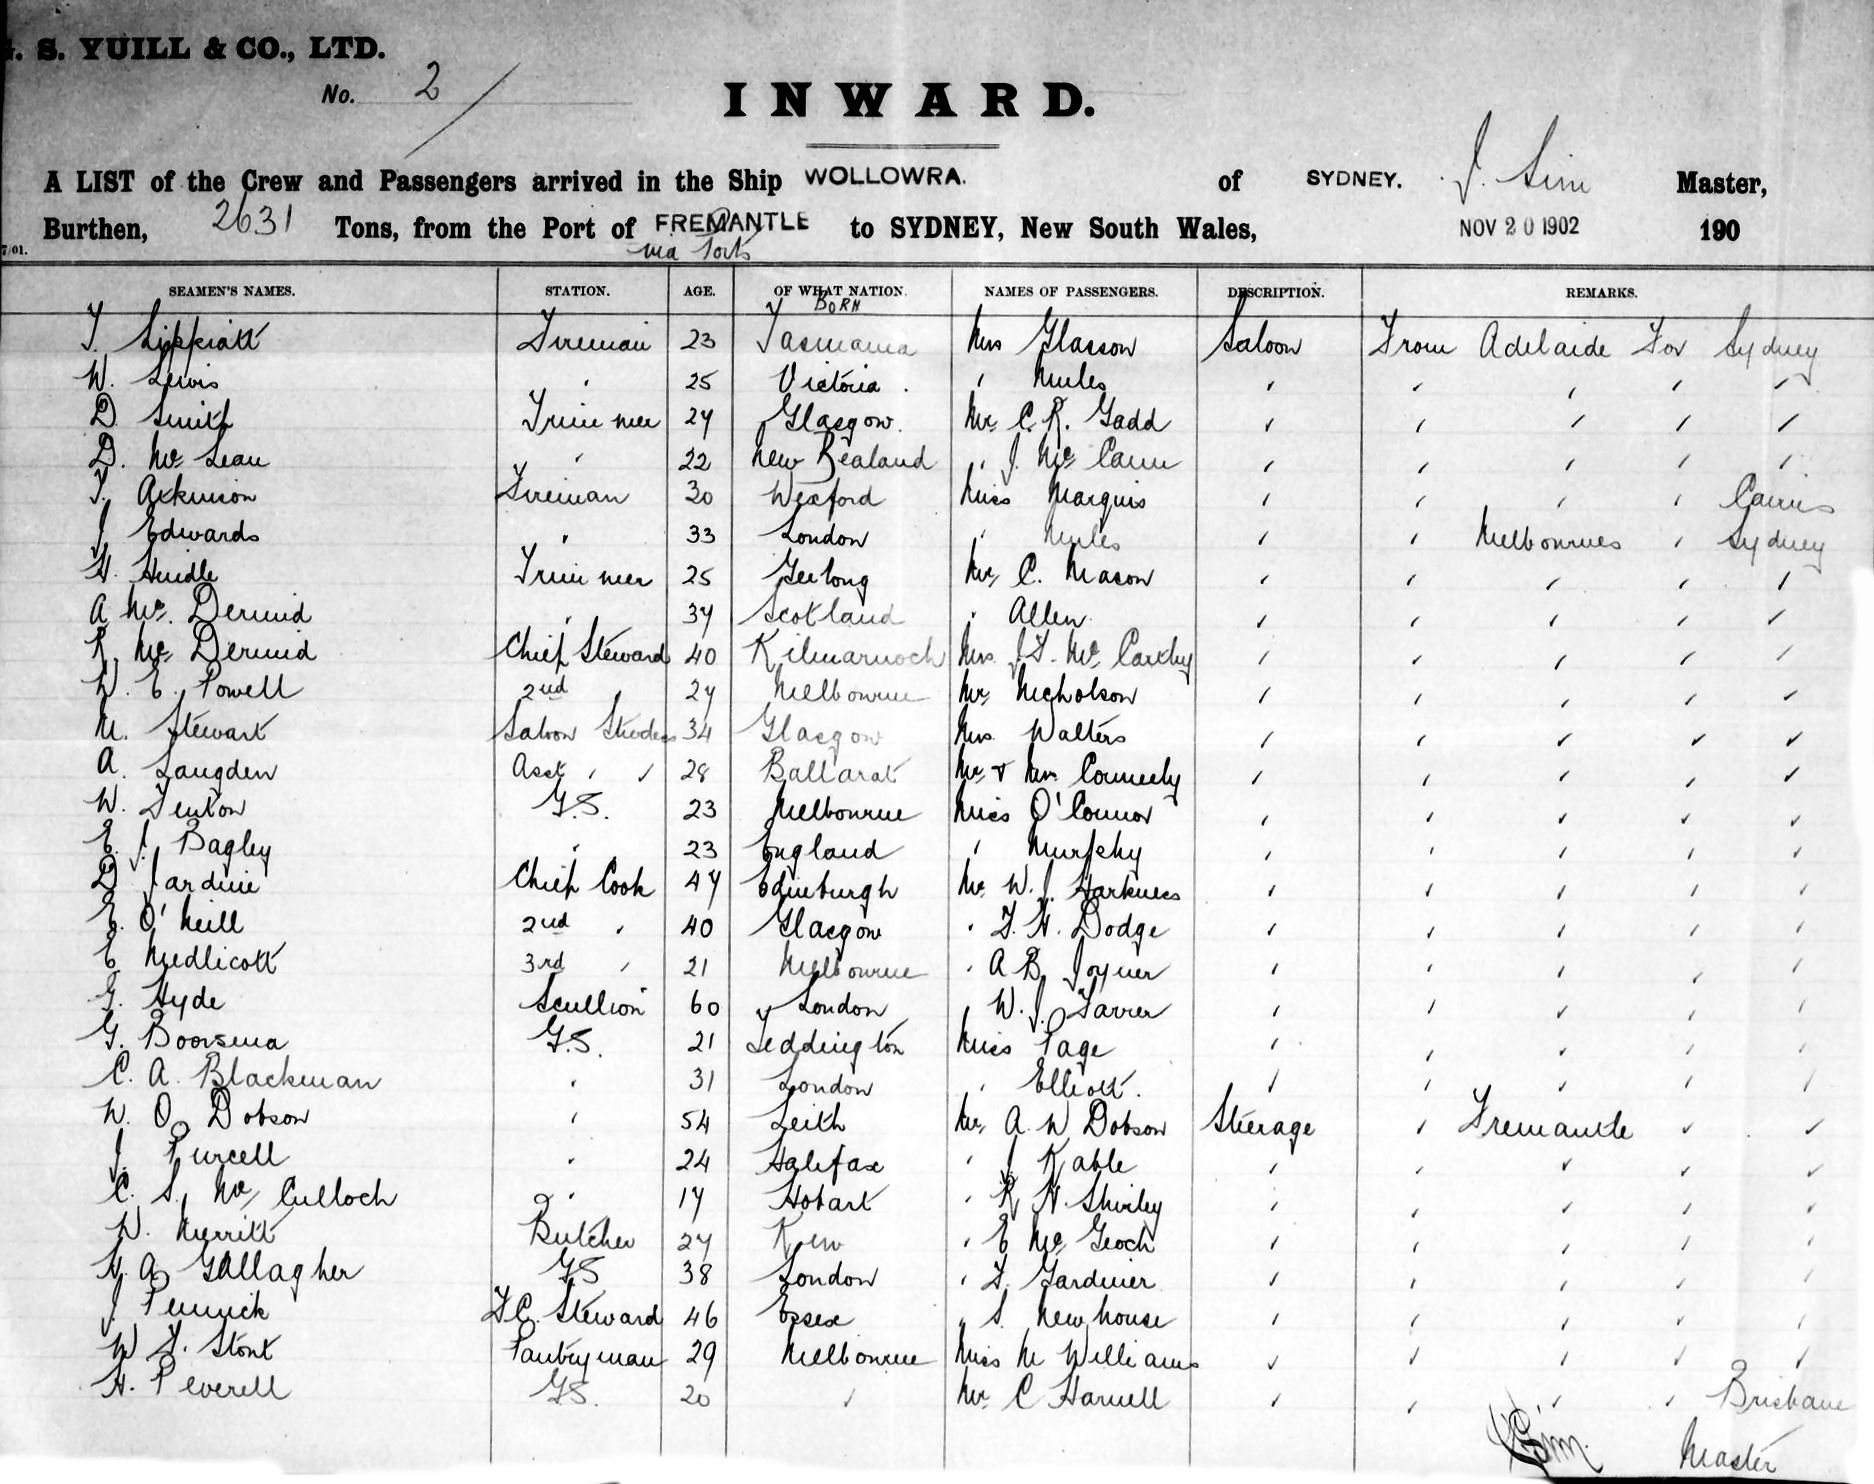 G. S. YUILL & CO., LTD.
No. 2/
INWARD.
A LIST of the Crew and Passengers arrived in the Ship WOLLOWRA. of SYDNEY. J. Sim Master,
Burthen, 2631 Tons, from the Port of FREMANTLE to SYDNEY, New South Wales, NOV 20 1902 190
7/01. via Ports
SEAMEN'S NAMES. STATION. AGE. OF WHAT NATION. NAMES OF PASSENGERS. DESCRIPTION. REMARKS.
BORN
T. Lippiatt Fireman 23 Tasmania Mrs Glasson Saloon From Adelaide For Sydney
W. Lewis " 25 Victoria. " Mules " " " " "
D. Smith Trimmer 27 Glasgow. Mr. C. R. Gadd " " " " "
D. McLean " 22 New Zealand " J. McCann " " " " "
T. Atkinson Fireman 30 Wexford Miss Marquis " " " " Cairns
J. Edwards " 33 London " Mules " " Melbourne " Sydney
H. Hindle Trimmer 25 Geelong Mr. C. Mason " " " " "
A. McDermid " 37 Scotland " Allen " " " " "
R. McDermid Chief Steward 40 Kilmarnock Mrs. J. F. McCarthy " " " " "
W. E. Powell 2nd " 27 Melbourne Mr. Nicholson " " " " "
M. Stewart Saloon Stwdess 34 Glasgow Mrs. Walters " " " " "
A. Langden Asst " " 28 Ballarat Mr. & Mrs. Conneely " " " " "
W. Fenton G.S. 23 Melbourne Miss O'Connor " " " " "
E. J. Bagley " 23 England " Murphy " " " " "
D. Jardine Chief Cook 47 Edinburgh Mr. W. J. Harkness " " " " "
E. O'Neill 2nd " 40 Glasgow " F. H. Dodge " " " " "
E. Medlicott 3rd " 21 Melbourne " A. B. Joyner " " " " "
G. Hyde Scullion 60 London " W. J. Farrer " " " " "
G. Boorsma G.S. 21 Teddington Miss Page " " " " "
C. A. Blackman " 31 London " Elliott. " " " " "
W. O. Dobson " 54 Leith Mr. A. W. Dobson Steerage " Fremantle " "
J. Purcell " 24 Halifax " J. Kable " " " " "
C. S. McCulloch " 17 Hobart " R. H. Shirley " " " " "
W. Merritt Butcher 27 Kew " E. McGeoch " " " " "
H. A. Gallagher G.S 38 London " F. Gardiner " " " " "
J. Pennick F.C. Steward 46 Essex " S. Newhouse " " " " "
W. F. Stont Pantryman 29 Melbourne Miss M Williams " " " " "
H. Peverell G.S. 20 " Mr. C Harnell " " " " Brisbane
J Sim. Master